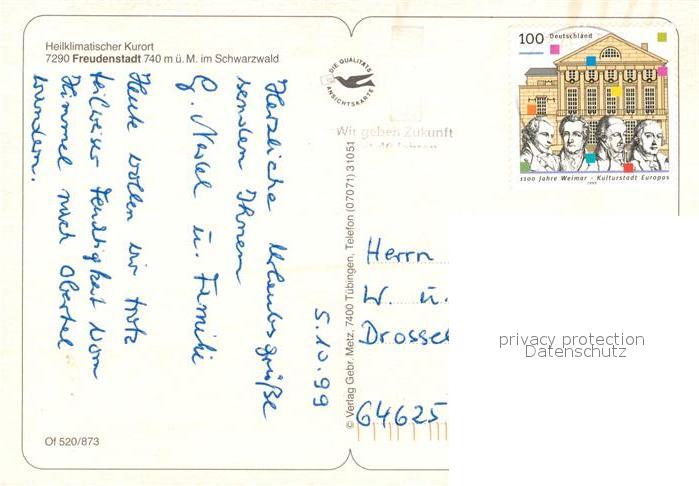 Heilklimatischer Kurort
7290 Freudenstadt 740 m ü. M. im Schwarzwald
5.10.99
Herzliche Urlaubsgrüße
senden Ihnen
G. u. Familie
Heute wollen wir trotz
teilweiser Feuchtigkeit vom
Himmel nach Obertal
wandern.
Of 520/873
© Verlag Gebr. Metz, 7400 Tübingen, Telefon (07071) 31051
DIE QUALITÄTS
ANSICHTSKARTE
Wir geben Zukunft
100 Deutschland
1100 Jahre Weimar - Kulturstadt Europas
1999
Herrn
W. u.
Drossel
64625
privacy protection
Datenschutz